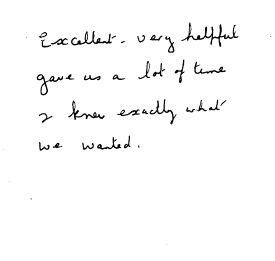 Excellent - very helpful
gave us a lot of time
& knew exactly what
we wanted.